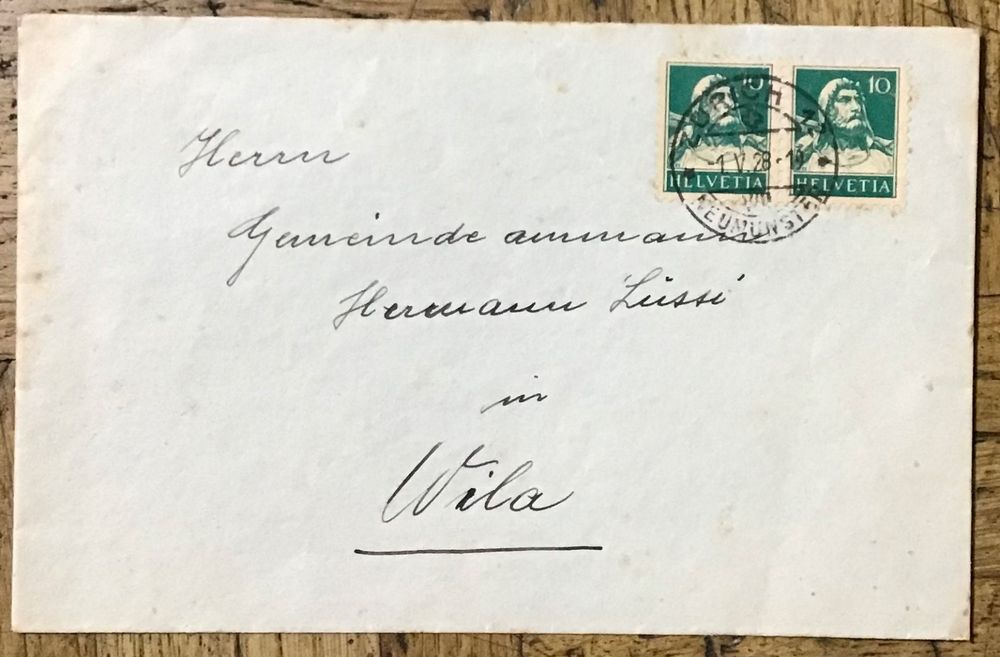 10
10
HELVETIA
HELVETIA
ZÜRICH
-1.V.28.-19
NEUMÜNST
Herrn
Gemeindeammann
Hermann Lüssi
in
Wila